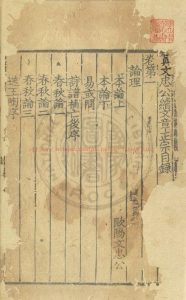 眞文忠公續文章正宗目錄
卷第一
論理
本論上
本論下
易或問
詩譜補亡後序
春秋論一
春秋論二
春秋論三
送王陶序
歐陽文忠公